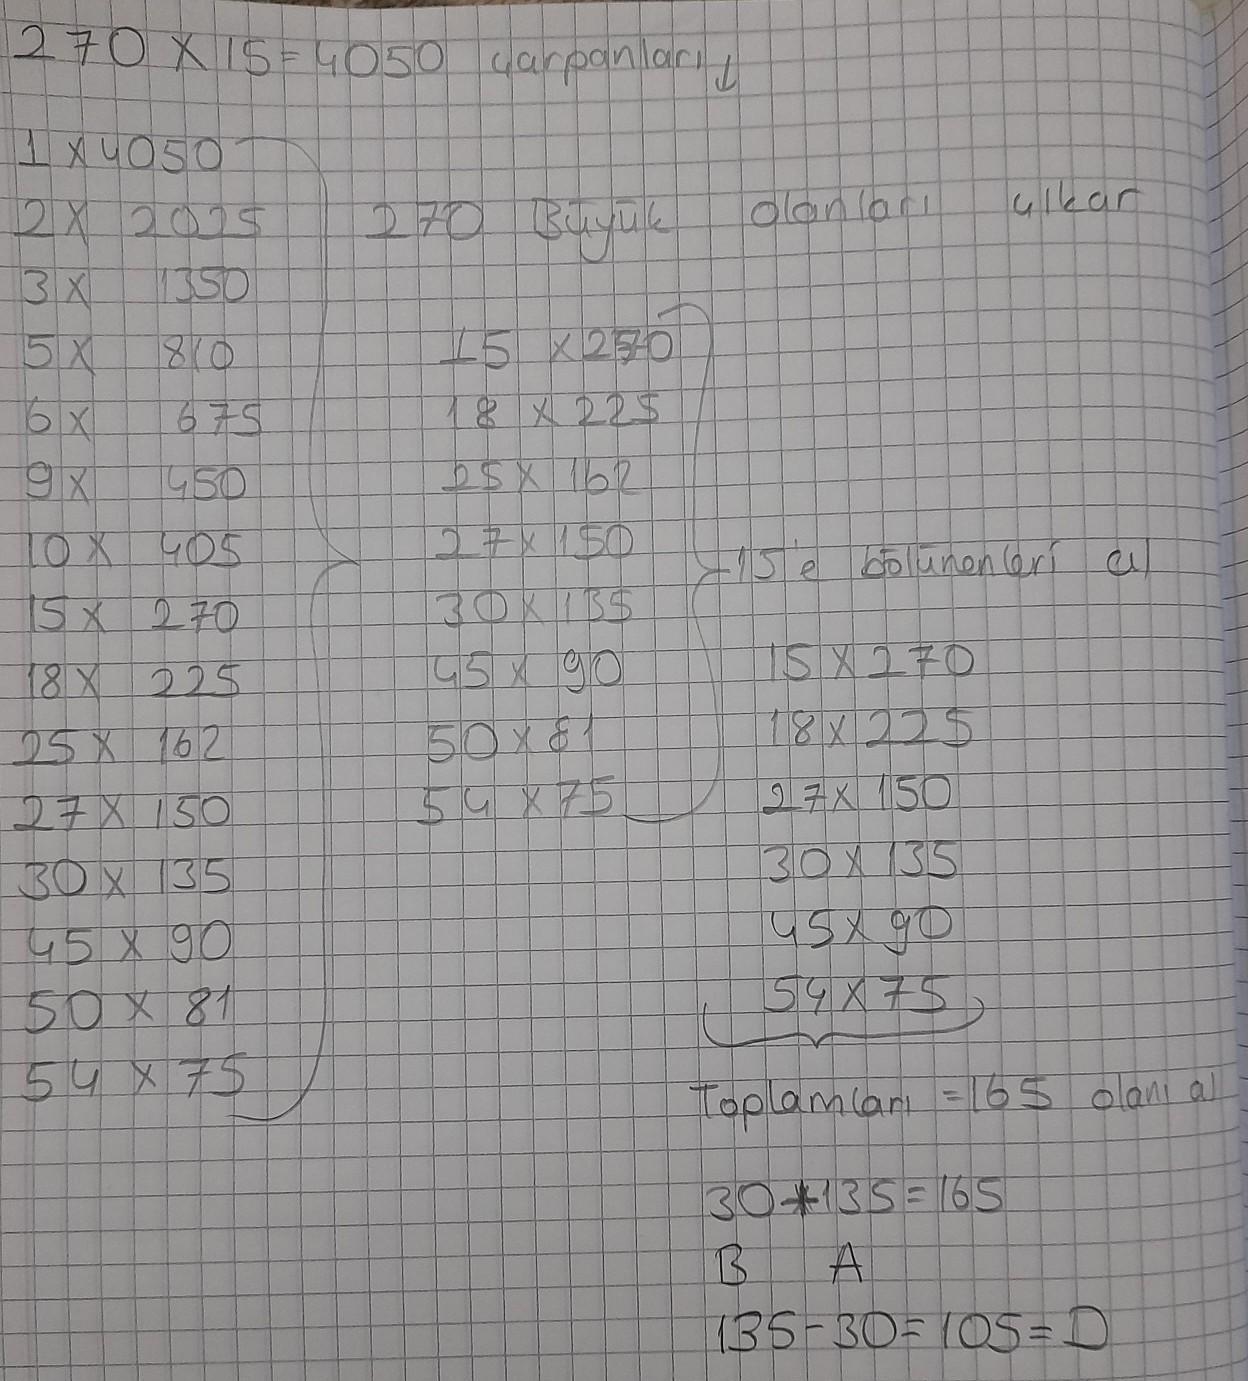 270 x 15 = 4050 çarpanları ↓
1 x 4050
2 x 2025
3 x 1350
5 x 810
6 x 675
9 x 450
10 x 405
15 x 270
18 x 225
25 x 162
27 x 150
30 x 135
45 x 90
50 x 81
54 x 75
270 Büyük olanları çıkar
15 x 270
18 x 225
25 x 162
27 x 150
30 x 135
45 x 90
50 x 81
54 x 75
15'e bölünenleri al
15 x 270
18 x 225
27 x 150
30 x 135
45 x 90
54 x 75
Toplamları = 165 olanı al
30 + 135 = 165
B A
135 - 30 = 105 = D